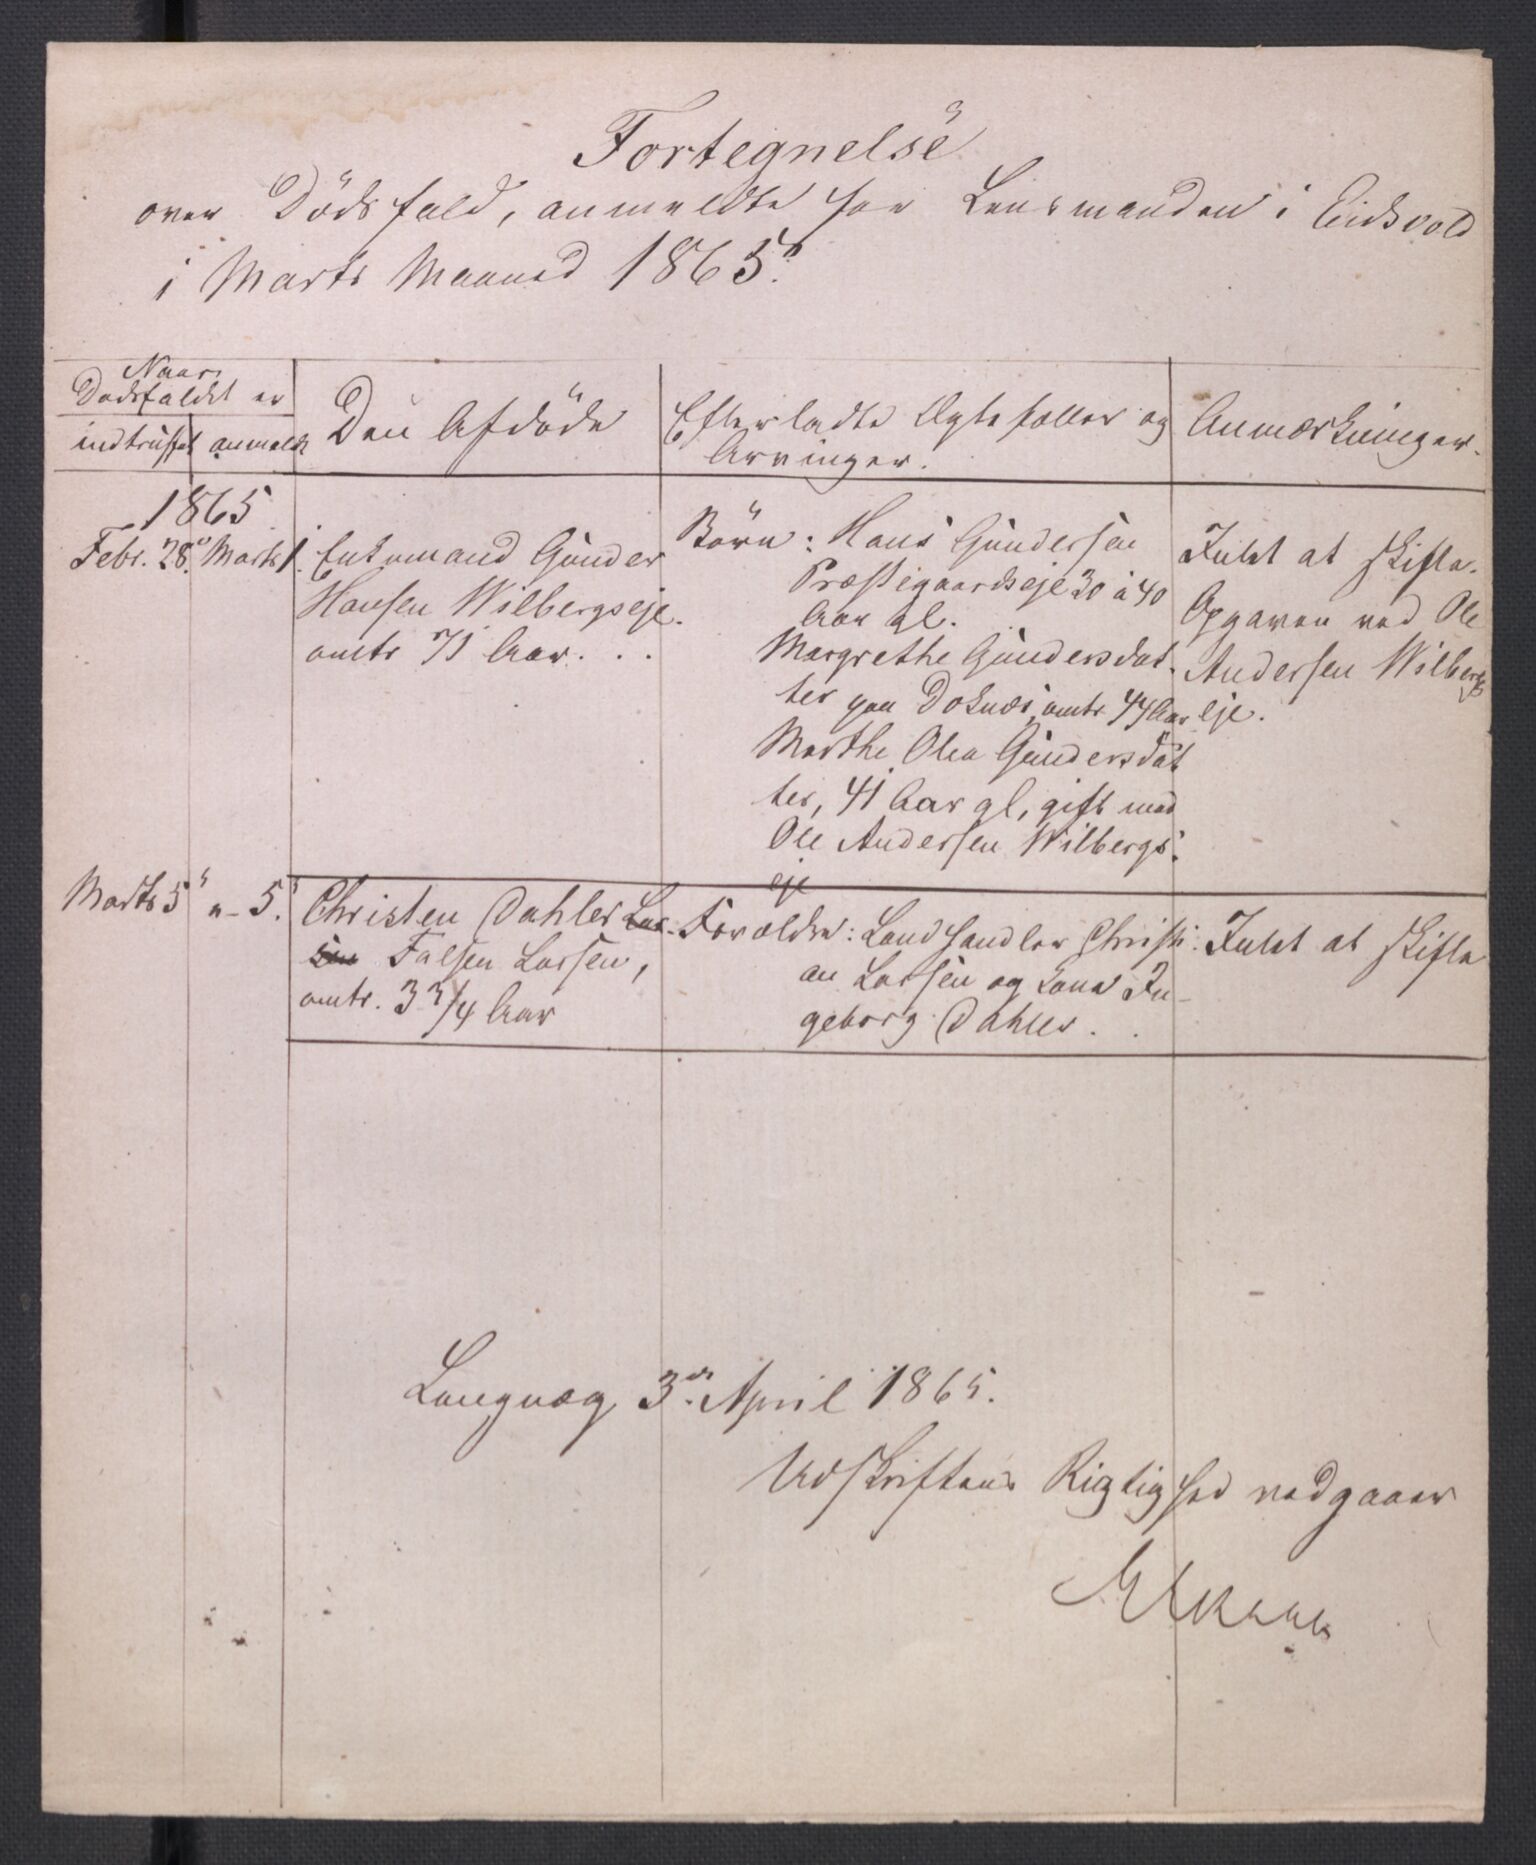 Fortegnelse
over Dödsfald, anmeldte for Lensmanden i Eidsvold
i Marts Maaned 1865.
Naar
Dødsfaldet er
indtruffet
anmeldt
Den Afdöde
Efterladte Ægtefæller og
Arvinger.
Anmærkninger.
1865
Febr. 28.
Marts 1.
Enkemand Gunder
Hansen Wilbergseje.
omtr 71 Aar. . .
Börn: Hans Gundersen
Præstegaardseje 30 à 40
Aar gl.
Margrethe Gundersdat-
ter paa Doknæs, omtr 44 Aar
Marthe Olea Gundersdat
ter, 41 Aar gl, gift med
Ole Andersen Wilbergs-
eje
Intet at skifte.
Opgaven ved Ole
Andersen Wilbergs
eje.
Marts 5
"- 5.
Christen Dahler Lar-
sen Falsen Larsen,
omtr. 3 3/4 Aar
Forældre: Landhandler Christi-
an Larsen og Kone In-
geborg Dahler. .
Intet at skifte
Langvæg 3. April 1865.
Udskriftens Rigtighed vedgaaer